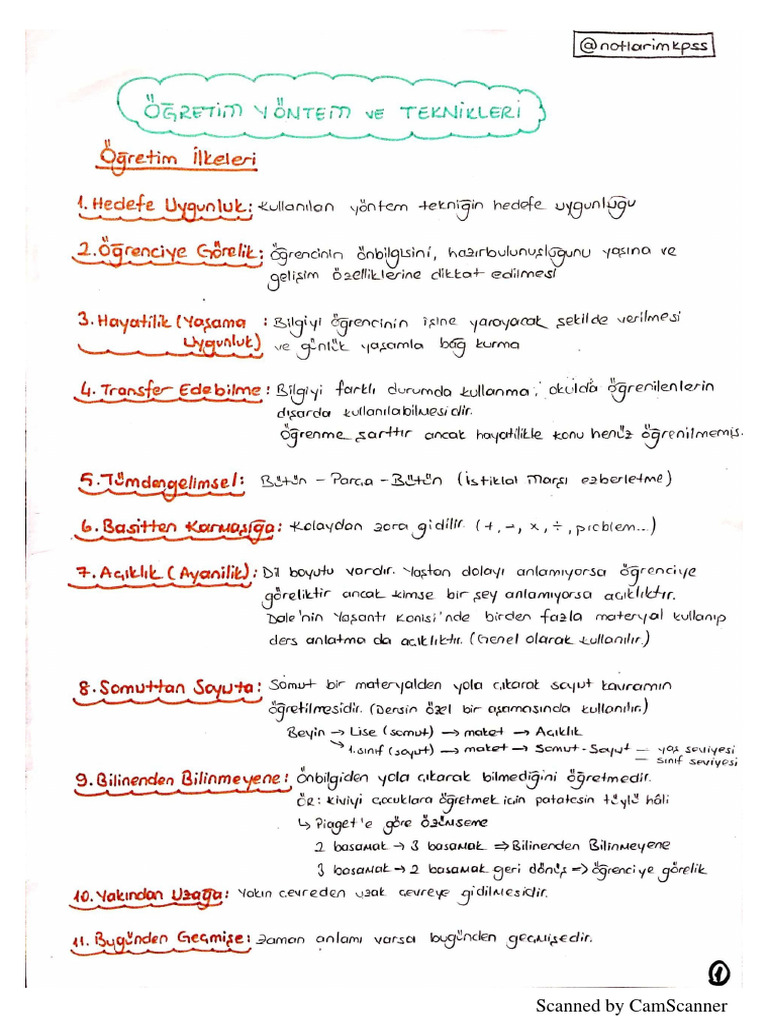 @notlarimkpss
ÖĞRETİM YÖNTEM VE TEKNİKLERİ
Öğretim İlkeleri
1. Hedefe Uygunluk: Kullanılan yöntem tekniğin hedefe uygunluğu
2. Öğrenciye Görelik: Öğrencinin önbilgisini, hazırbulunuşluğunu yaşına ve
gelişim özelliklerine dikkat edilmesi
3. Hayatilik (Yaşama : Bilgiyi öğrencinin işine yarayacak şekilde verilmesi
Uygunluk) ve günlük yaşamla bağ kurma
4. Transfer Edebilme: Bilgiyi farklı durumda kullanma, okulda öğrenilenlerin
dışarda kullanılabilmesidir.
Öğrenme şarttır ancak hayatilikle konu henüz öğrenilmemiş.
5. Tümdengelimsel: Bütün - Parça - Bütün (İstiklal Marşı ezberletme)
6. Basitten Karmaşığa: Kolaydan zora gidilir. (+, -, ×, ÷, problem...)
7. Açıklık (Ayanilik): Dil boyutu vardır. Yaştan dolayı anlamıyorsa öğrenciye
göreliktir ancak kimse bir şey anlamıyorsa açıklıktır.
Dale'nin Yaşantı Konisi'nde birden fazla materyal kullanıp
ders anlatma da açıklıktır. (Genel olarak kullanılır.)
8. Somuttan Soyuta: Somut bir materyalden yola çıkarak soyut kavramın
öğretilmesidir. (Dersin özel bir aşamasında kullanılır.)
Beyin → Lise (somut) → maket → Açıklık
↘ 1. sınıf (soyut) → maket → Somut - Soyut — yaş seviyesi
— sınıf seviyesi
9. Bilinenden Bilinmeyene: Önbilgiden yola çıkarak bilmediğini öğretmedir.
ÖR: Kiviyi çocuklara öğretmek için patatesin tüylü hâli
↳ Piaget'e göre özümseme
2 basamak → 3 basamak ⇒ Bilinenden Bilinmeyene
3 basamak → 2 basamak geri dönüş ⇒ öğrenciye görelik
10. Yakından Uzağa: Yakın çevreden uzak çevreye gidilmesidir.
11. Bugünden Geçmişe: Zaman anlamı varsa bugünden geçmişedir.
1
Scanned by CamScanner